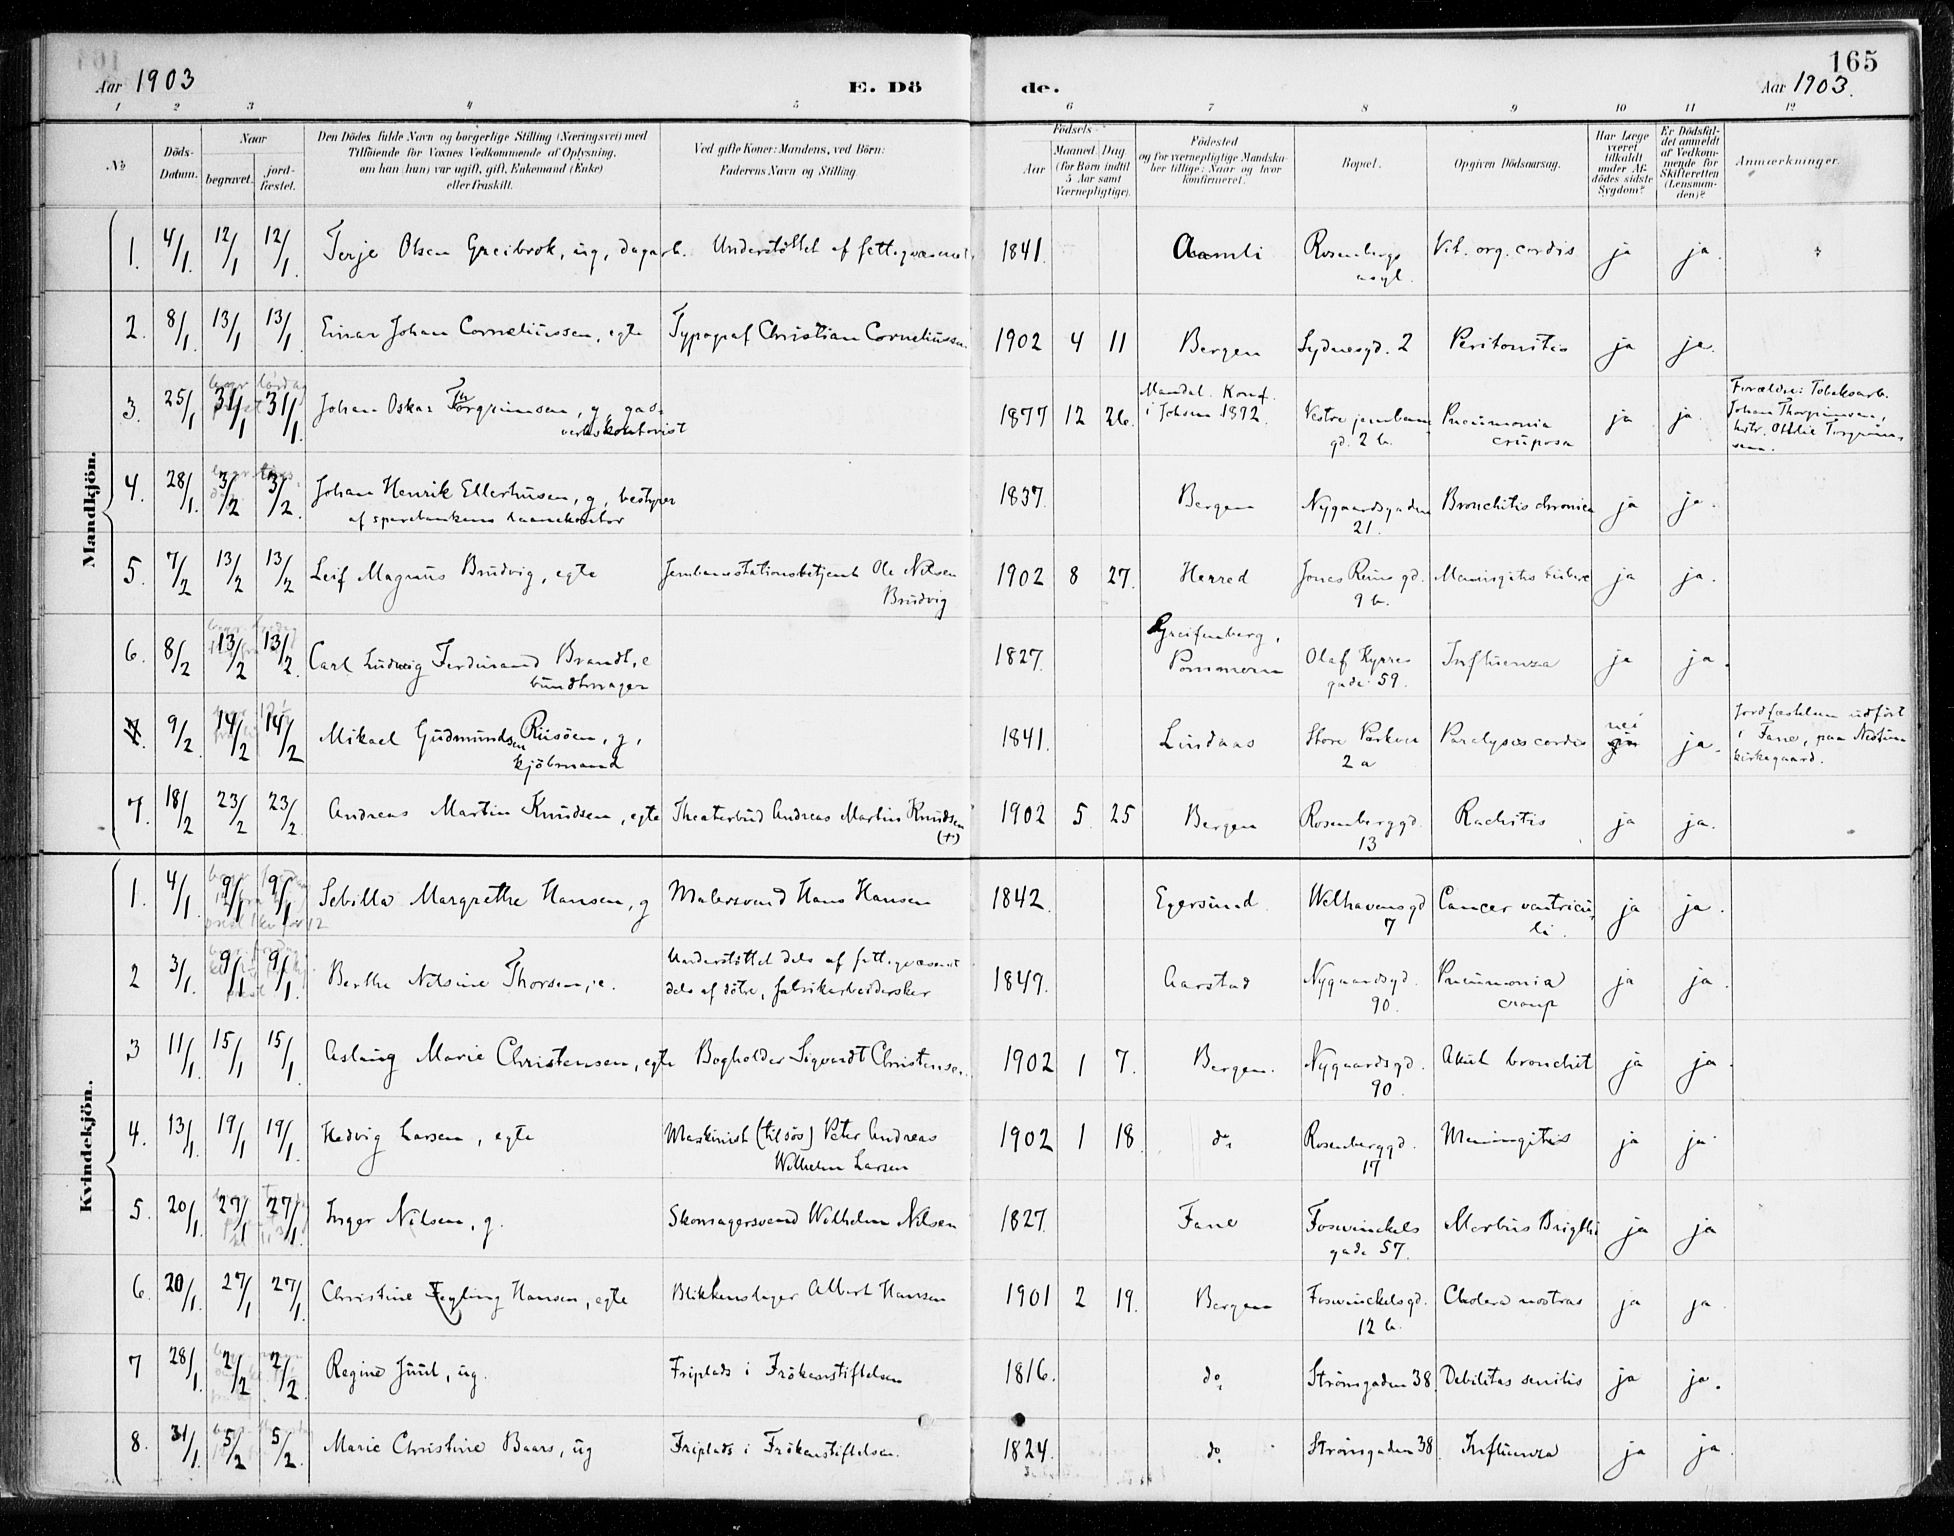 165
Aar 1903
E. Dö
de.
Aar 1903.
1 2 3 4 5 6 7 8 9 10 11 12
No
Döds-Datum.
Naar
begravet.
jord-fæstet.
Den Dödes fulde Navn og borgerlige Stilling (Næringsvei) med
Tilföiende for Voxnes Vedkommende af Oplysning,
om han (hun) var ugift, gift, Enkemand (Enke)
eller fraskilt.
Ved gifte Koner: Mandens, ved Börn:
Faderens Navn og Stilling.
Födsels-
Aar
Maaned Dag
(for Børn indtil
5 Aar samt
Værnepligtige).
Födested
og for værnepligtige Mandskaber tillige: Naar og hvor
konfirmeret.
Bopæl.
Opgiven Dödsaarsag.
Har Læge
været
tilkaldt
under Afdödes sidste
Sygdom?
Er Dödsfaldet anmeldt
af Vedkommende for
Skifteretten
(Lensmanden)?
Anmærkninger.
Mandkjön.
1. 4/1. 12/1 12/1. Terje Olsen Greibrok, ug, dagarb. Understöttet af fattigvæsenet. 1841. Aamli Rosenbergs asyl. Vit. org. cordis ja ja.
2. 8/1. 13/1 13/1 Einar Johan Corneliussen, egte Typograf Christian Corneliussen. 1902 4 11 Bergen Sydnesgd. 2 Peritonitis ja ja.
3. 25/1 31/1 31/1. Johan Oskar Thorgrimsen, g, gasverkskontorist 1877 12 26. Mandal. Konf. i Johsm 1892. Vestre jernbanegd. 2 b. Pneumonia cruposa ja ja. Forældre: Tobaksarb. Johan Thorgrimsen, hstr. Othilie Torgrimssen.
4. 28/1. 3/2 3/2. Johan Henrik Ellerhusen, g, bestyrer
af sparebankens laanekontor 1837. Bergen Nygaardsgaden 21. Bronchitis chronica ja ja.
5. 7/2 13/2 13/2 Leif Magnus Brudvig, egte Jernbanestationsbetjent Ole Nilsen Brudvig 1902 8 27. Herred Jonas Reins gd. 9 b. Meningitis tuberc ja ja.
6. 8/2 13/2 13/2. Carl Ludwig Ferdinand Brandt, e
bundtmager 1827. Greifenberg, Pommern Olaf Kyrres gade 59. Influenza ja ja.
9/2. 14/2 14/2 Mikael Gudmundsen Risöen, g,
kjöbmand 1841. Lindaas Store Parkvei 2 a Paralysis cordis nei ja. Jordfæstelsen udfört i Fane, paa Nestun kirkegaard.
7. 18/2 23/2 23/2. Andreas Martin Knudsen, egte Theaterbud Andreas Martin Knudsen (+) 1902 5. 25 Bergen Rosenberggd. 13 Rachitis ja ja.
Kvindekjön.
1. 4/1. 9/1 9/1 Sebilla Margrethe Hansen, g Malersvend Hans Hansen 1842. Egersund. Welhavensgd 7 Cancer ventriculi. ja ja.
2 3/1. 9/1 9/1. Berthe Nilsine Thorsen, e. Understöttet dels af fattigvæsenet
dels af dötre, fabrikarbeidersker 1849. Aarstad Nygaardsgd. 90. Pneumonia croup ja ja.
3 11/1. 15/1 15/1. Aslaug Marie Christensen, egte Bogholder Sigvardt Christensen. 1902 1 7. Bergen. Nygaardsgd. 90. Akut bronchit ja ja.
4. 13/1. 19/1 19/1. Hedvig Larsen, egte Maskinist (tilsös) Peter Andreas Wilhelm Larsen 1902 1 18. do. Rosenberggd. 17 Meningitis ja ja.
5. 20/1. 27/1 27/1. Inger Nilsen, g. Skomagersvend Wilhelm Nilsen 1827. Fane Foswinckels gade 57. Morbus Brightii ja ja
6. 20/1. 27/1 27/1. Christine Fegling Hansen, egte Blikkenslager Albert Hansen 1901 2 19. Bergen Foswinckelsgd. 12 b. Cholera nostras ja ja.
7 28/1. 2/2 2/2. Regine Juul, ug. Friplads i Frökenstiftelsen 1816. do. Strömgaden 38. Debilitas senilis ja ja.
8. 31/1. 5/2 5/2. Marie Christine Baars, ug Friplads i Frökenstiftelsen. 1824. do. Strömgaden 38. Influenza ja ja